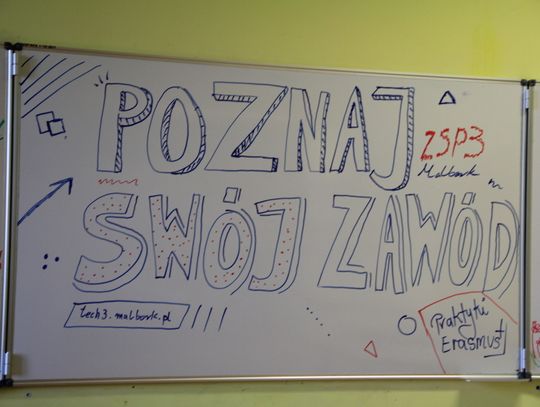 POZNAJ
ZSP3
Malbork
SWÓJ ZAWÓD
tech3.malbork.pl
Praktyki
Erasmus+